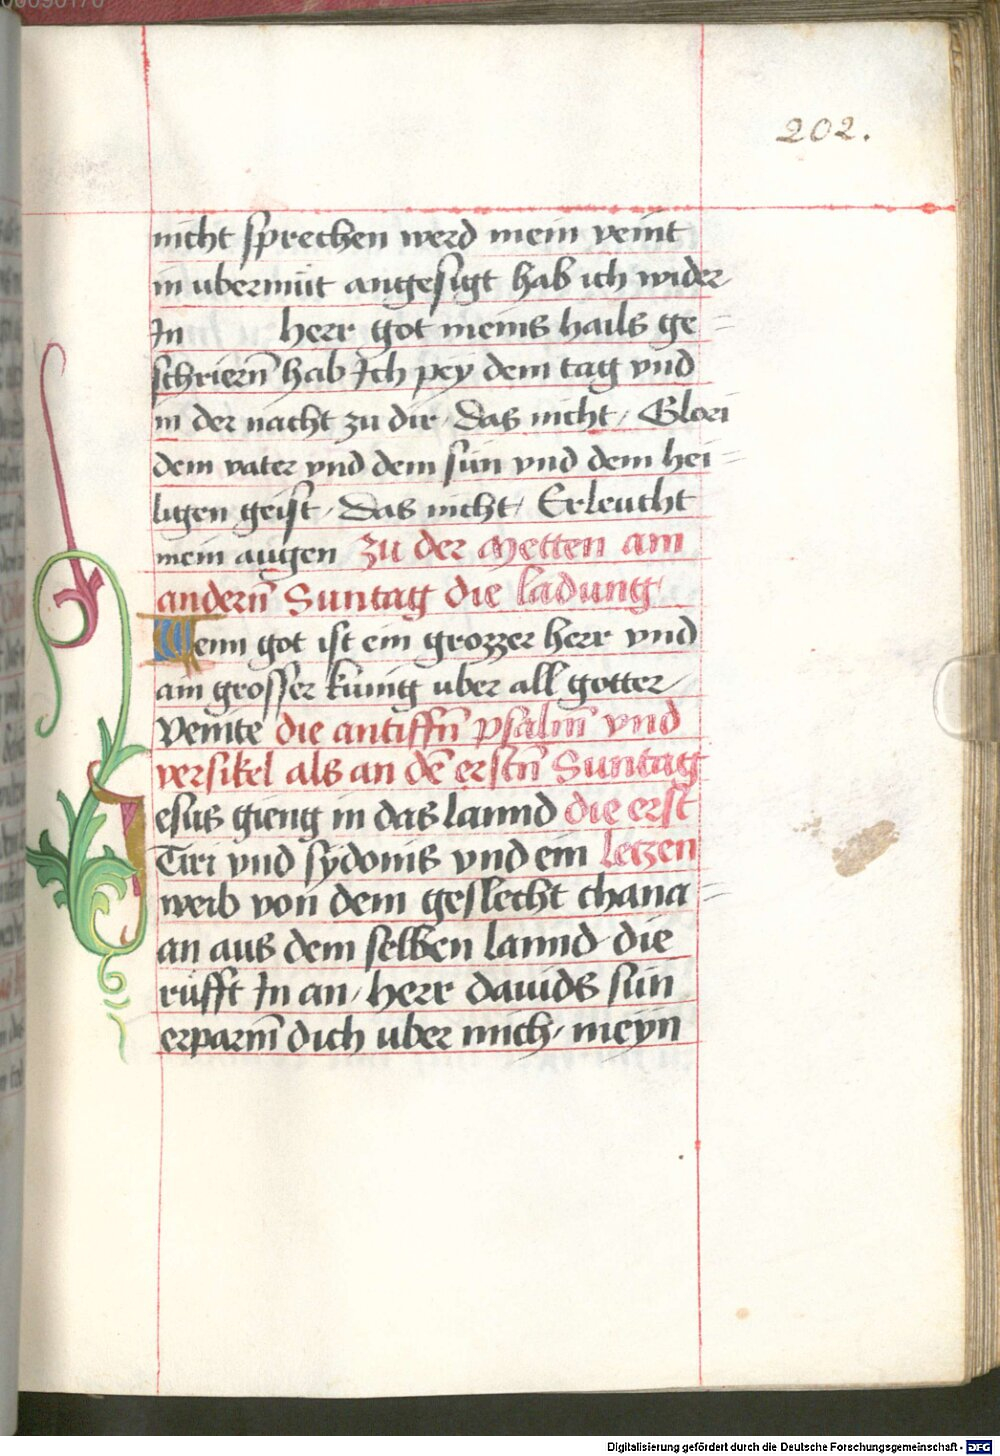 00090170
202.
nicht sprechen werd mein veint
in ubermüt angesigt hab ich wider
In herr got meins hails ge=
schriern̄ hab Ich pey dem tag vnd
in der nacht zu dir, Das nicht, Glori
dem vater vnd dem sün vnd dem hei=
ligen geist, Das nicht, Erleucht
mein augen zu der Metten am
andern̄ Suntag die ladung
Wenn got ist ein grozzer herr vnd
am grosser künig uber all gotter
Venite die antiffn̄ psalm̄ vnd
versikel als an dē erstn̄ Suntag
Jesus gieng in das lannd die erst
Tiri vnd sydonis vnd ein letzen
weib von dem geslecht chana=
an aus dem selben lannd die
rüfft In an, herr dauids sün
erparm̄ dich uber mich, meyn
Digitalisierung gefördert durch die Deutsche Forschungsgemeinschaft - DFG